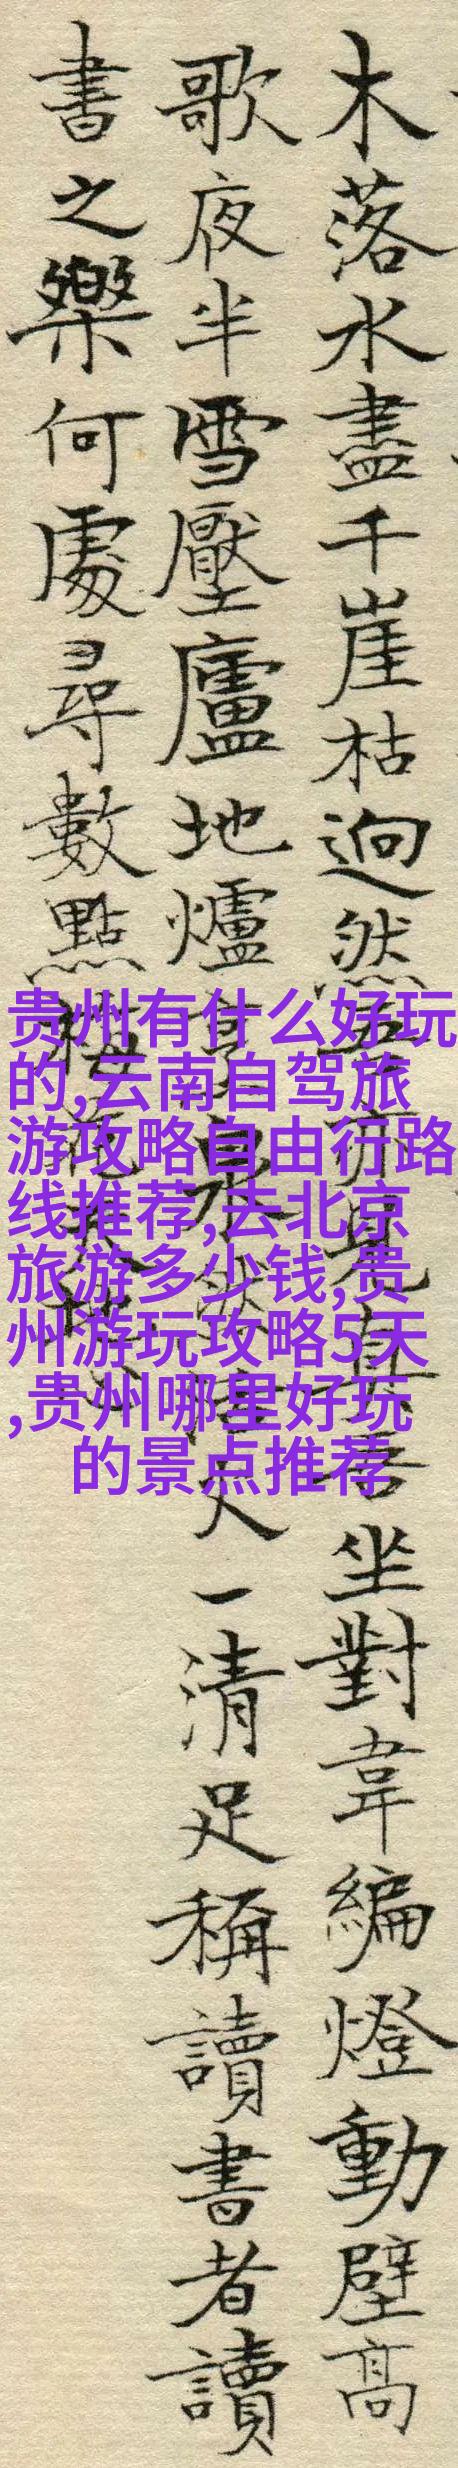 木落水盡千崖枯迥然吾亦見真吾坐對韋編燈動壁高
歌夜半雪壓廬地爐泉人一清足稱讀書者讀
書之樂何處尋數點梅花天地心
贵州有什么好玩
的,云南自驾旅
游攻略自由行路
线推荐,去北京
旅游多少钱,贵
州游玩攻略5天
,贵州哪里好玩
的景点推荐